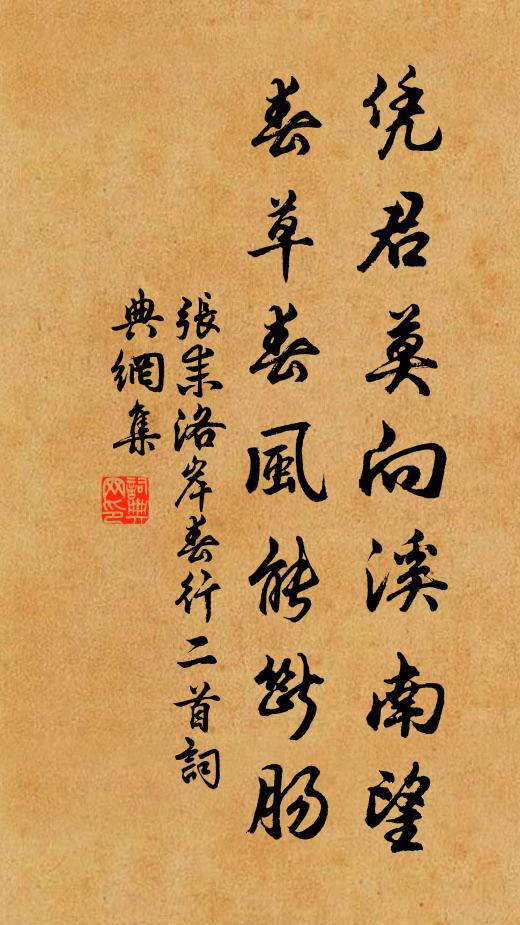 凭君莫向溪南望
春草春風能斷肠
張耒洛岸春行二首詞
典網集
詞典
网印